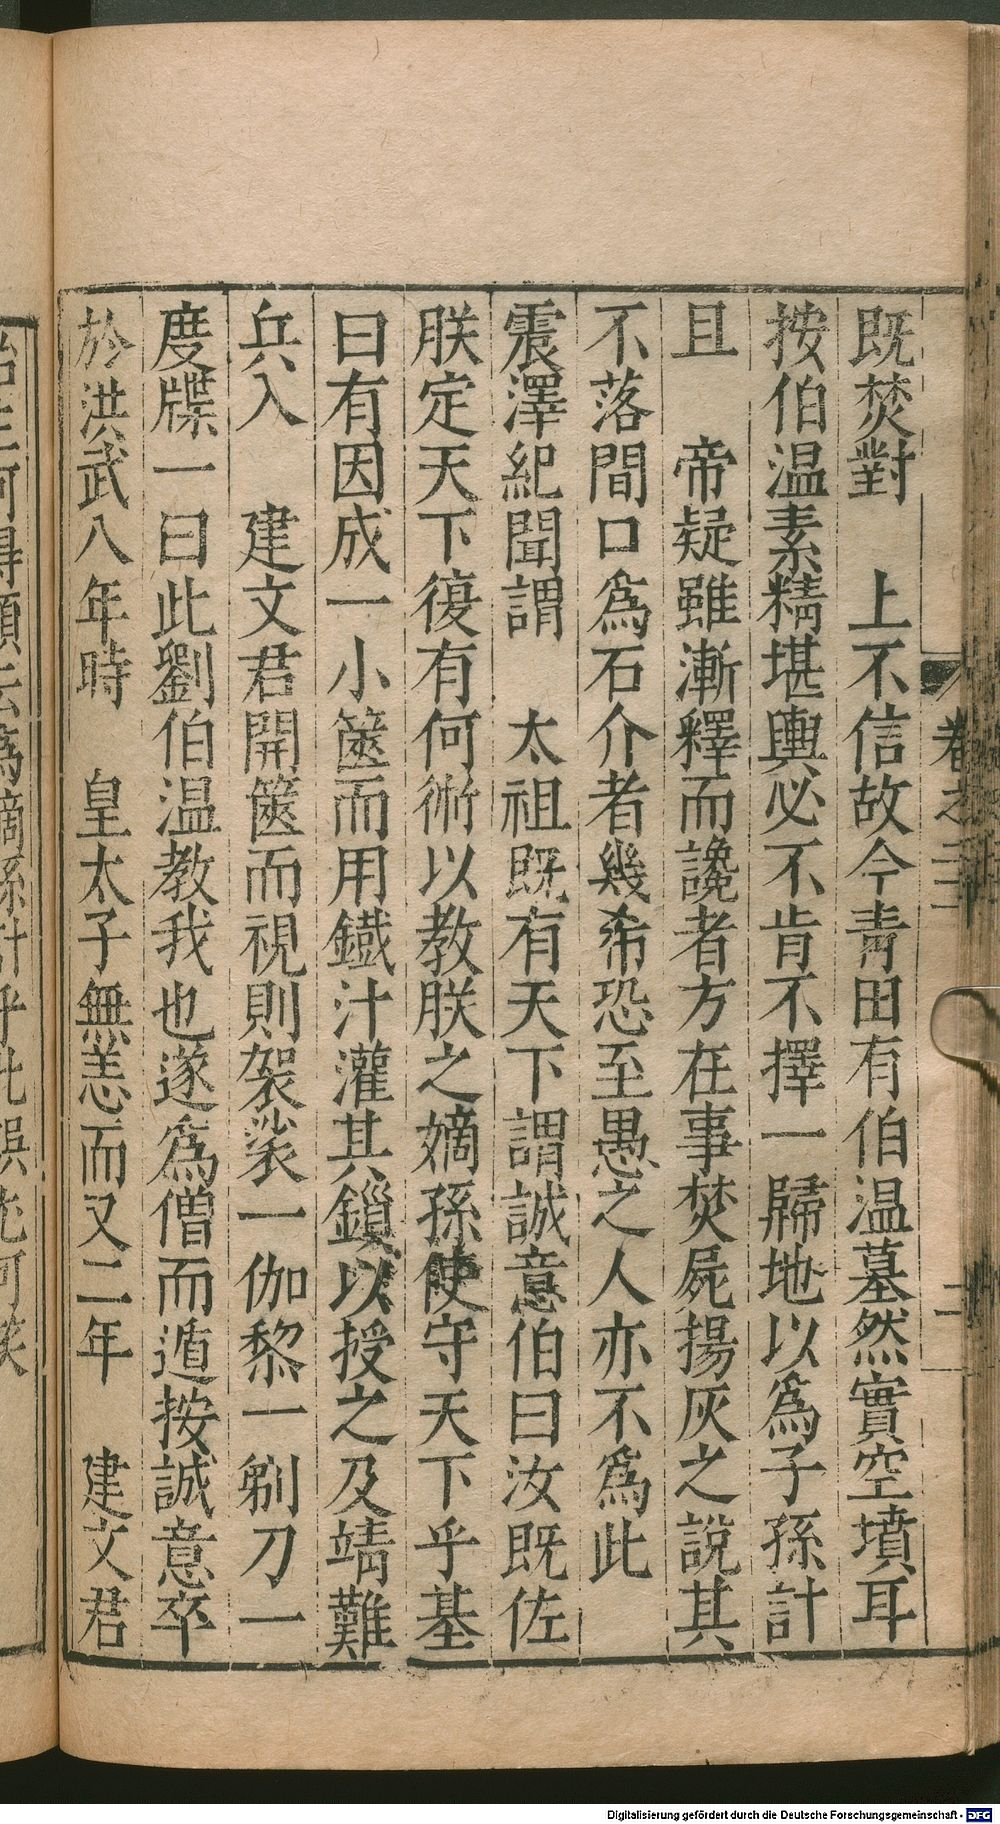 卷之二 二
既焚對　上不信故今青田有伯温墓然實空墳耳
按伯温素精堪輿必不肯不擇一歸地以爲子孫計
且　帝疑雖漸釋而讒者方在事焚屍揚灰之説其
不落間口爲石介者幾希恐至愚之人亦不爲此
震澤紀聞謂　太祖既有天下謂誠意伯曰汝既佐
朕定天下復有何術以教朕之嫡孫使守天下乎基
曰有因成一小篋而用鐵汁灌其鎖以授之及靖難
兵入　建文君開篋而視則袈裟一伽黎一剃刀一
度牒一曰此劉伯温教我也遂爲僧而遁按誠意卒
於洪武八年時　皇太子無恙而又二年　建文君
Digitalisierung gefördert durch die Deutsche Forschungsgemeinschaft - DFG